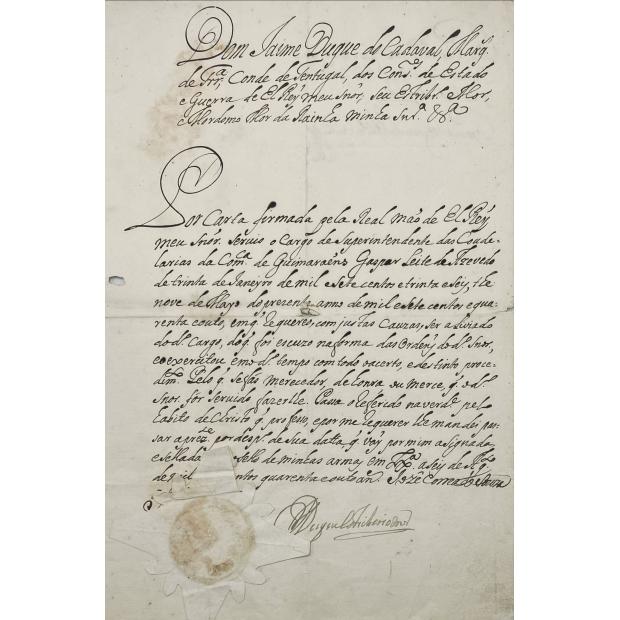 Dom Jaime Duque do Cadaval, Marq.
de Frr.ª Conde de Tentugal, dos Cons.os de Estado
e Guerra de El Rey meu Snor, seu Estribr.o Mor,
e Mordomo Mor da Rainha minha Snr.ª &.ª
Por Carta firmada pela Real Mão de El Rey
meu Snor. Servio o Cargo de Superintendente das Coude-
larias da Com.ca de Guimaraens Gaspar Leite de Azevedo
de trinta de Janeyro de mil esete centos etrinta e sey, the
nove de Mayo do prezente anno de mil e sete centos equa-
renta eouto, em q. requereo, com justas Cauzas, ser aliviado
do d.o Cargo, do q. foi escuzo na forma das Ordens do d.o Snor,
eo exercitou em o d.o tempo com todo o acerto, e destinto proce-
dim.to Pelo q. se fas merecedor, de honra ou merce, q. o d.o
Snor. for servido fazerlhe. Passa o referido na verd.e pelo
habito de Christo q. professo, e por me requerer lhe mandei pas-
sar a prez.te por desp.o de sua datta q. vay por mim asignada,
esellada sello de minhas armas, em Lx.ª a sey de Ag.to
de mil entos quarenta eouto an. Correa de Souza
Duque Estribeiro Mor